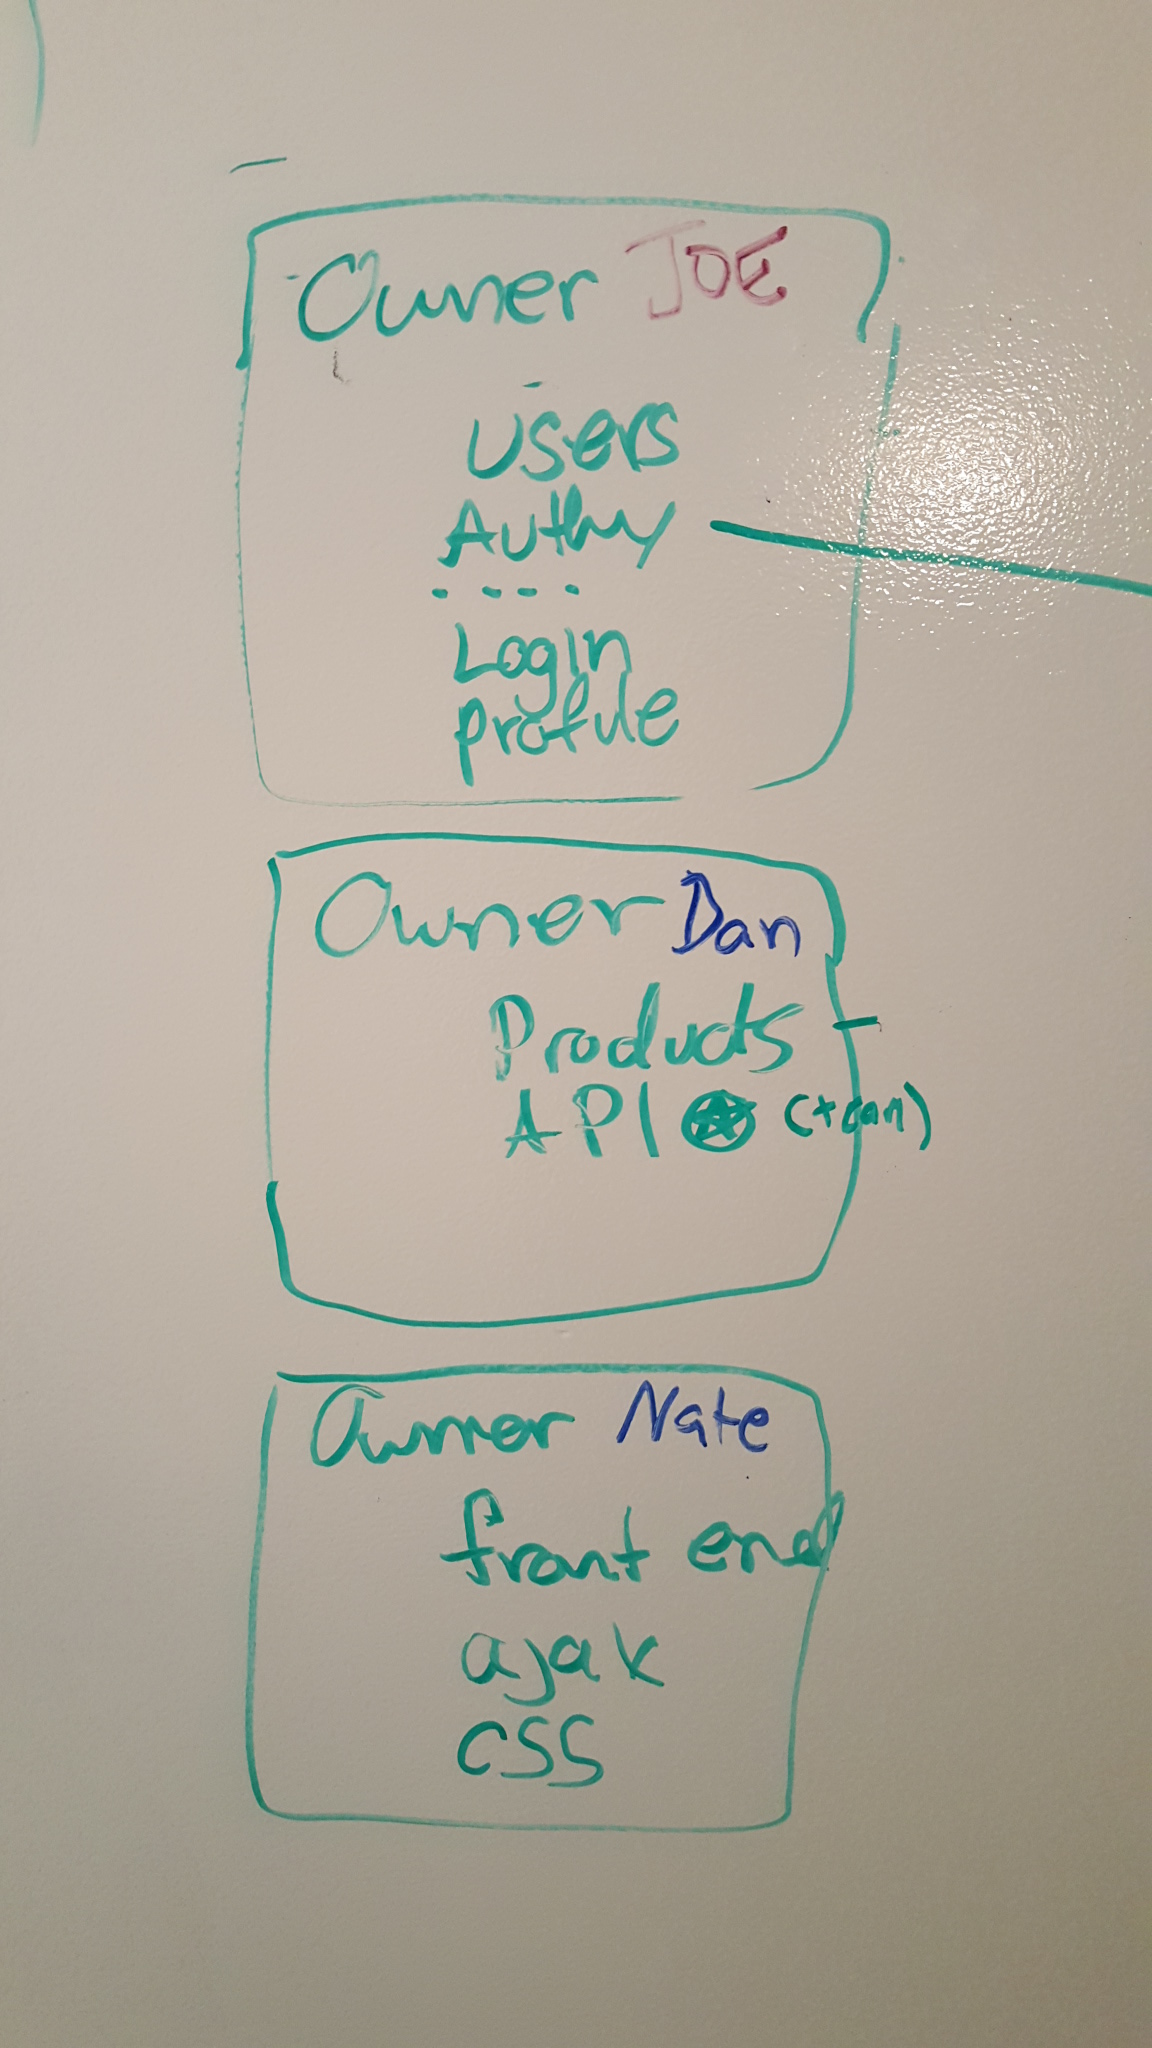 Owner JOE
Users
Authy
Login
profile
Owner Dan
Products
API
Owner Nate
front end
ajak
CSS